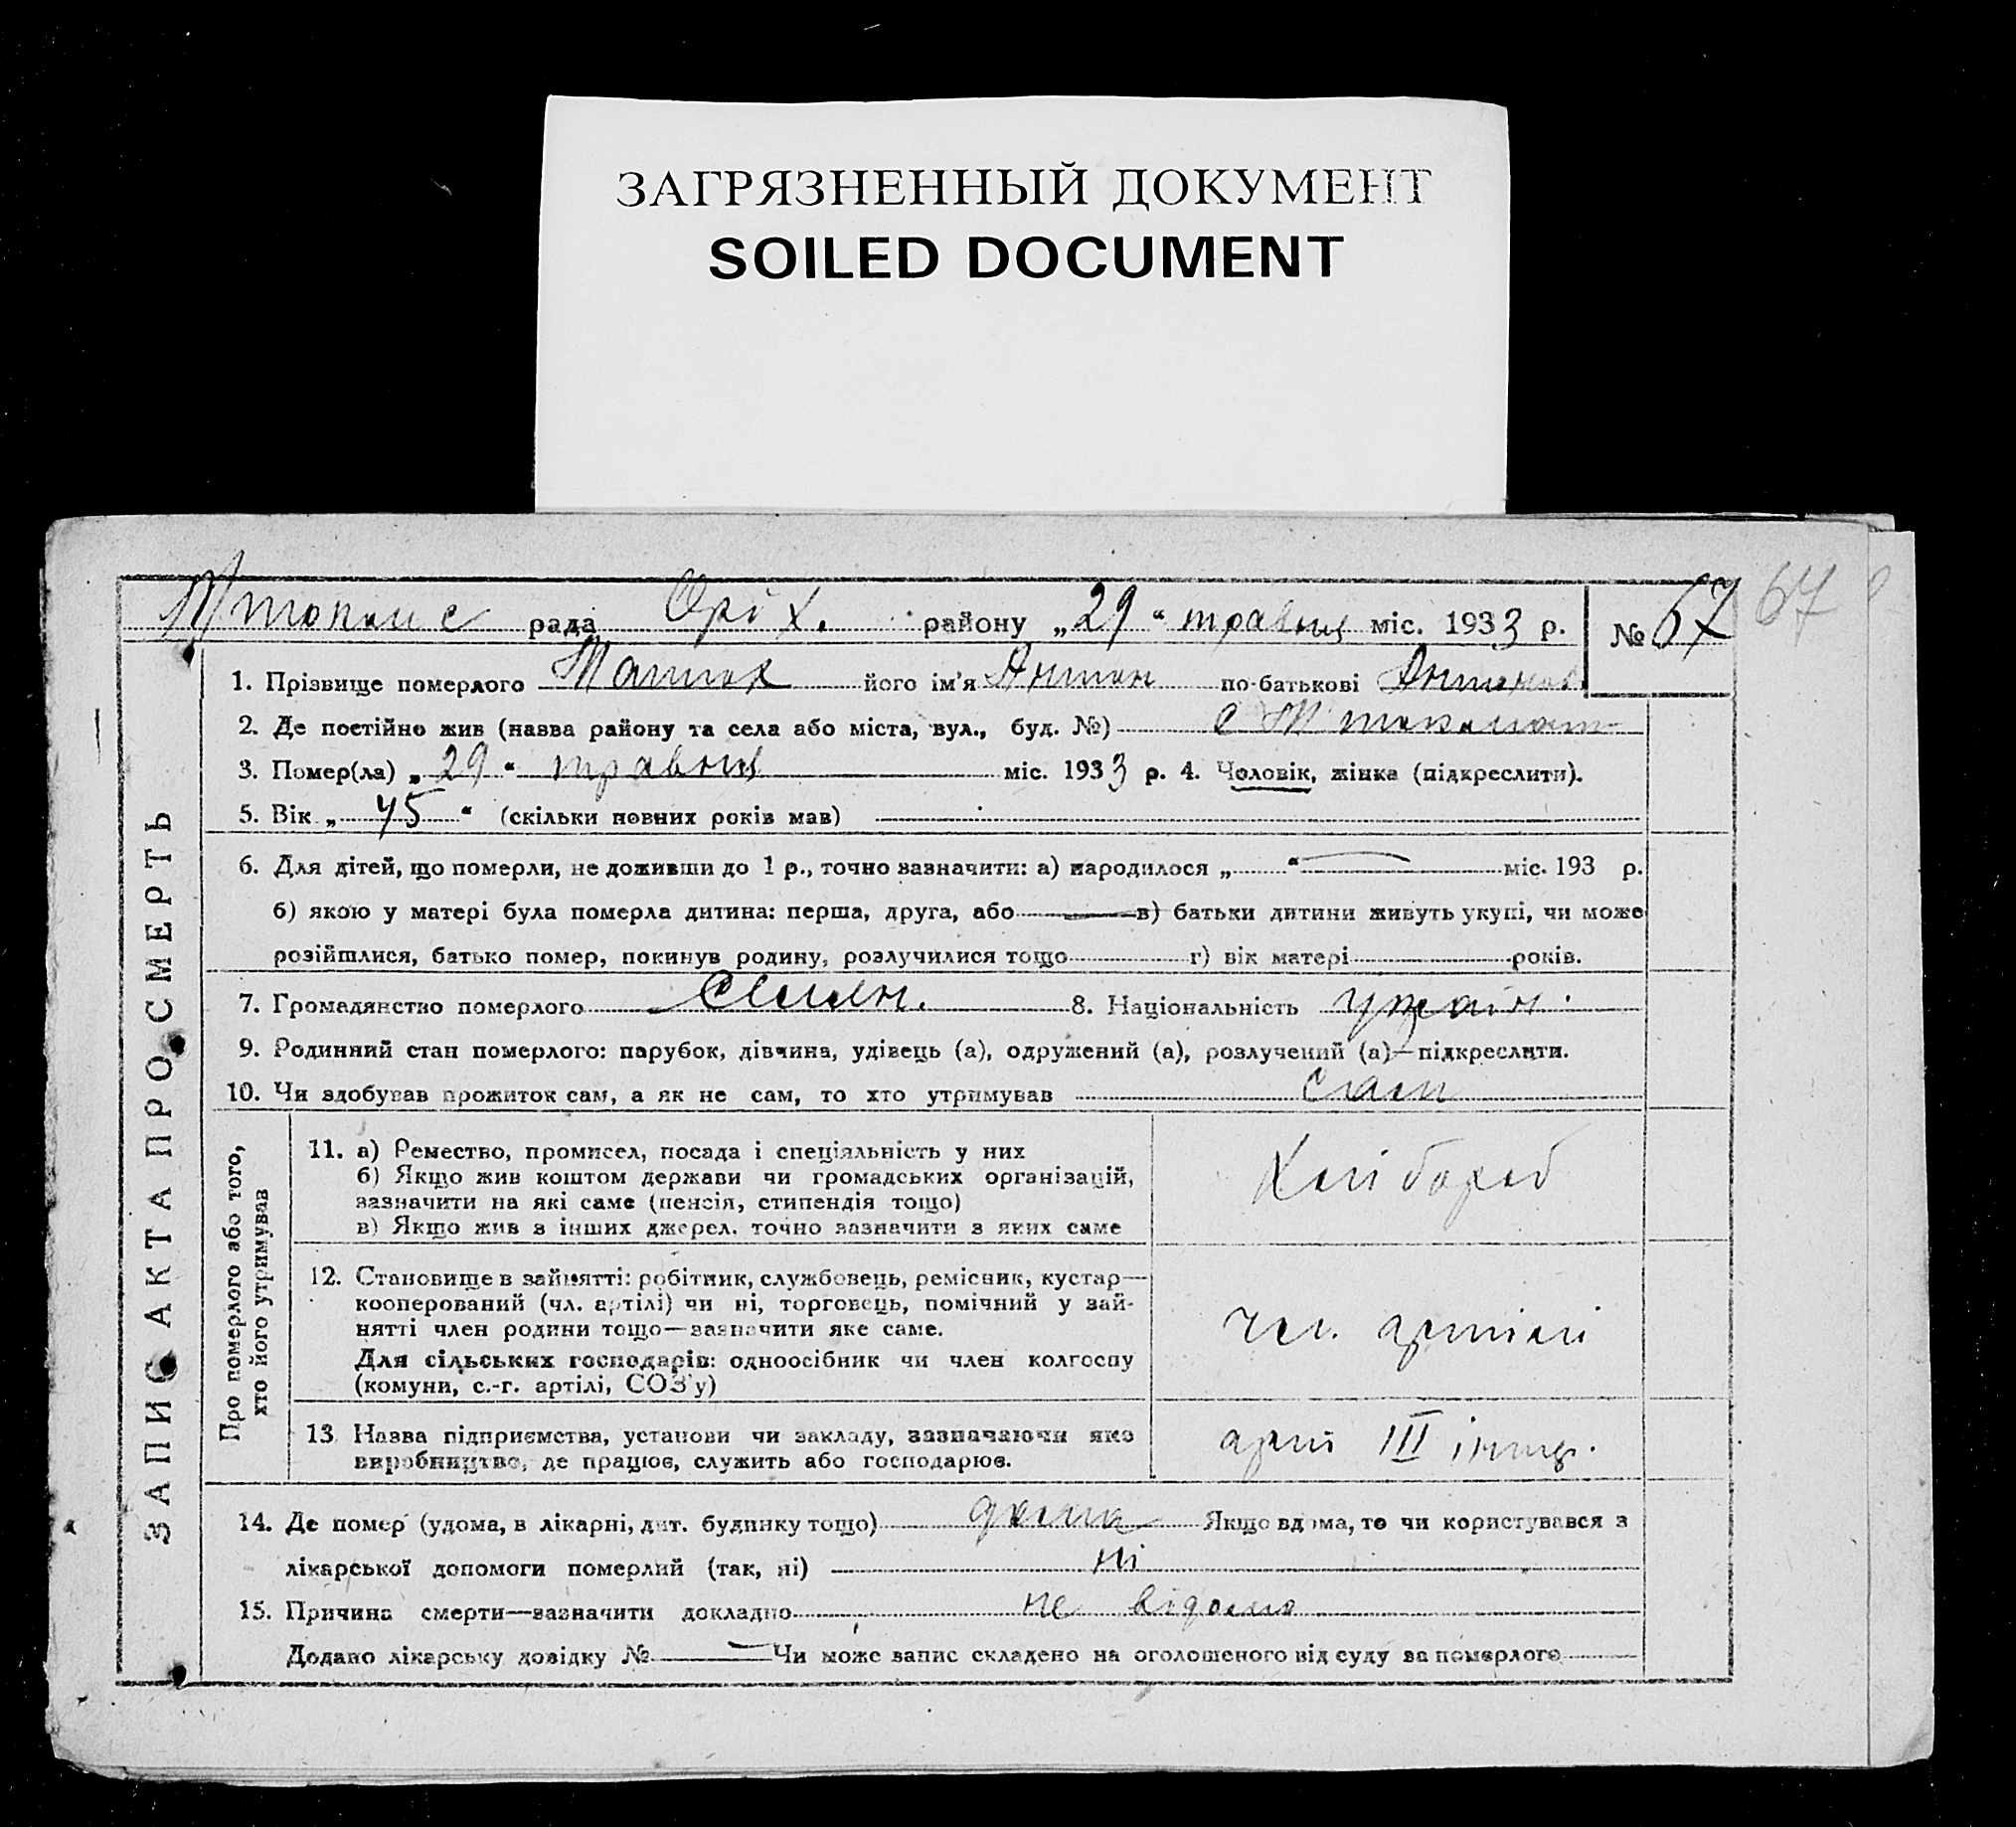 ЗАГРЯЗНЕННЫЙ ДОКУМЕНТ
SOILED DOCUMENT
рада Оріх. району „29“ травня міс. 1933 р. № 67 67
1. Прізвище померлого його ім'я Антон по-батькові Антонов
2. Де постійно жив (назва району та села або міста, вул., буд. №) с
3. Помер(ла) „29“ травня міс. 1933 р. 4. Чоловік, жінка (підкреслити).
5. Вік „45“ (скільки повних років мав)
6. Для дітей, що померли, не доживши до 1 р., точно зазначити: а) народилося „ “ міс. 193 р.
б) якою у матері була померла дитина: перша, друга, або в) батьки дитини живуть укупі, чи може
розійшлися, батько помер, покинув родину, розлучилися тощо г) вік матері років.
7. Громадянство померлого 8. Національність україн.
9. Родинний стан померлого: парубок, дівчина, удівець (а), одружений (а), розлучений (а)—підкреслити.
10. Чи здобував прожиток сам, а як не сам, то хто утримував сам
ЗАПИС АКТА ПРО СМЕРТЬ
Про померлого або того,
хто його утримував
11. а) Ремество, промисел, посада і спеціяльність у них
б) Якщо жив коштом держави чи громадських організацій,
зазначити на які саме (пенсія, стипендія тощо)
в) Якщо жив з інших джерел. точно зазначити з яких саме
Хлібороб
12. Становище в зайнятті: робітник, службовець, ремісник, кустар—
кооперований (чл. артілі) чи ні, торговець, помічний у зай-
нятті член родини тощо—зазначити яке саме.
Для сільських господарів: одноосібник чи член колгоспу
(комуни, с.-г. артілі, СОЗ'у)
чл. артілі
13 Назва підприємства, установи чи закладу, зазначаючи яке
виробництво, де працює, служить або господарює.
арт III інтер.
14. Де помер (удома, в лікарні, дит. будинку тощо) дома Якщо вдома, то чи користувався з
лікарської допомоги померлий (так, ні) ні
15. Причина смерти—зазначити докладно не відомо
Додано лікарську довідку № — Чи може запис складено на оголошеного від суду за померлого